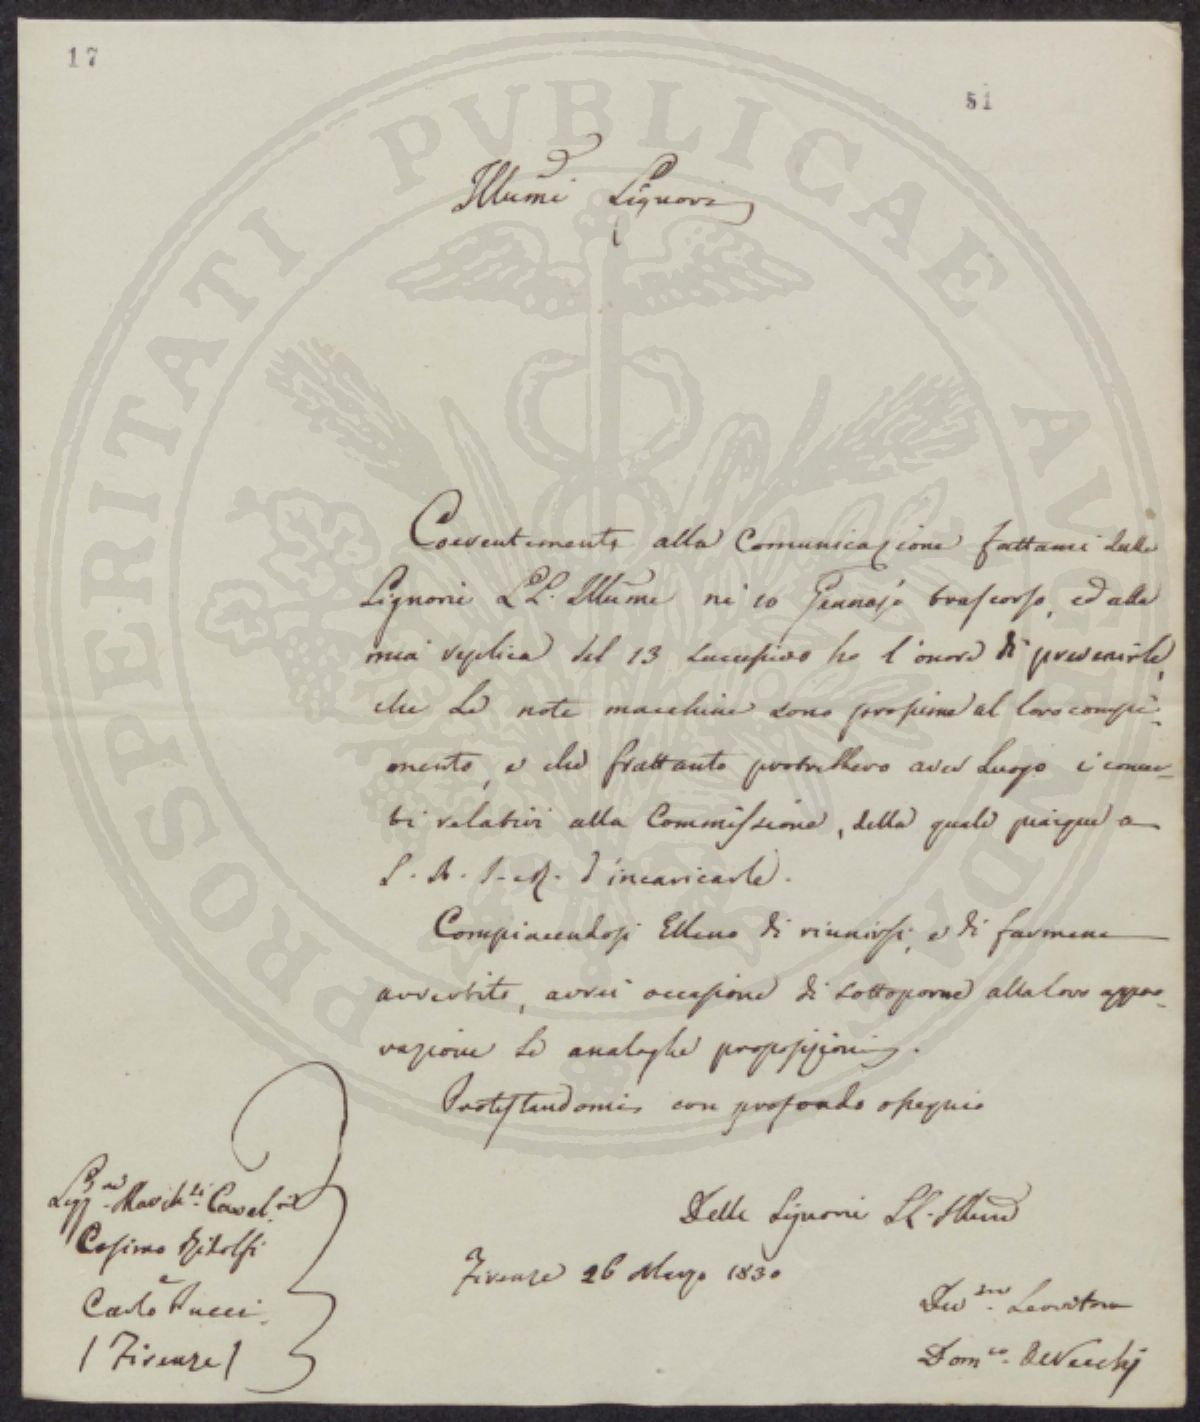 17
51
Illu̅mi Signori
Coerentemente alla Comunicazione fattami dalle
Signorie LL. Illu̅me ne' 10 Gennajo trascorso, ed alla
mia replica del 13 successivo ho l'onore di prevenirle,
che le note macchine sono prossime al loro compi=
mento, e che frattanto potrebbero aver luogo i concer=
ti relativi alla Commissione, della quale piacque a
S. A. I. e R. d'incaricarle.
Compiacendosi Elleno di riunirsi, e di farmene
avvertito, avrei occasione di sottoporre alla loro appro=
vazione le analoghe proposizioni.
Protestandomi con profondo ossequio
Delle Signorie LL. Illu̅me
Firenze 26 Marzo 1830
Dev.mo Servitore
Dom.co De Vecchj
Sigg.ri March.si Caval.ri
Cosimo Ridolfi
e
Carlo Pucci
(Firenze)
PROSPERITATI PVBLICAE AVGENDAE